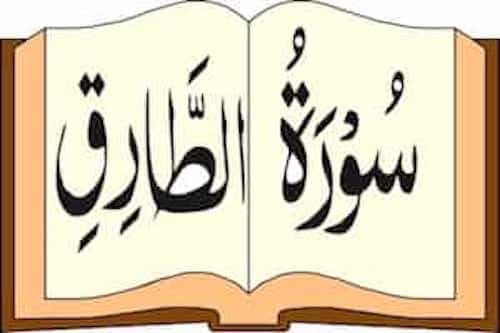 سُوْرَةُ الطَّارِقِ